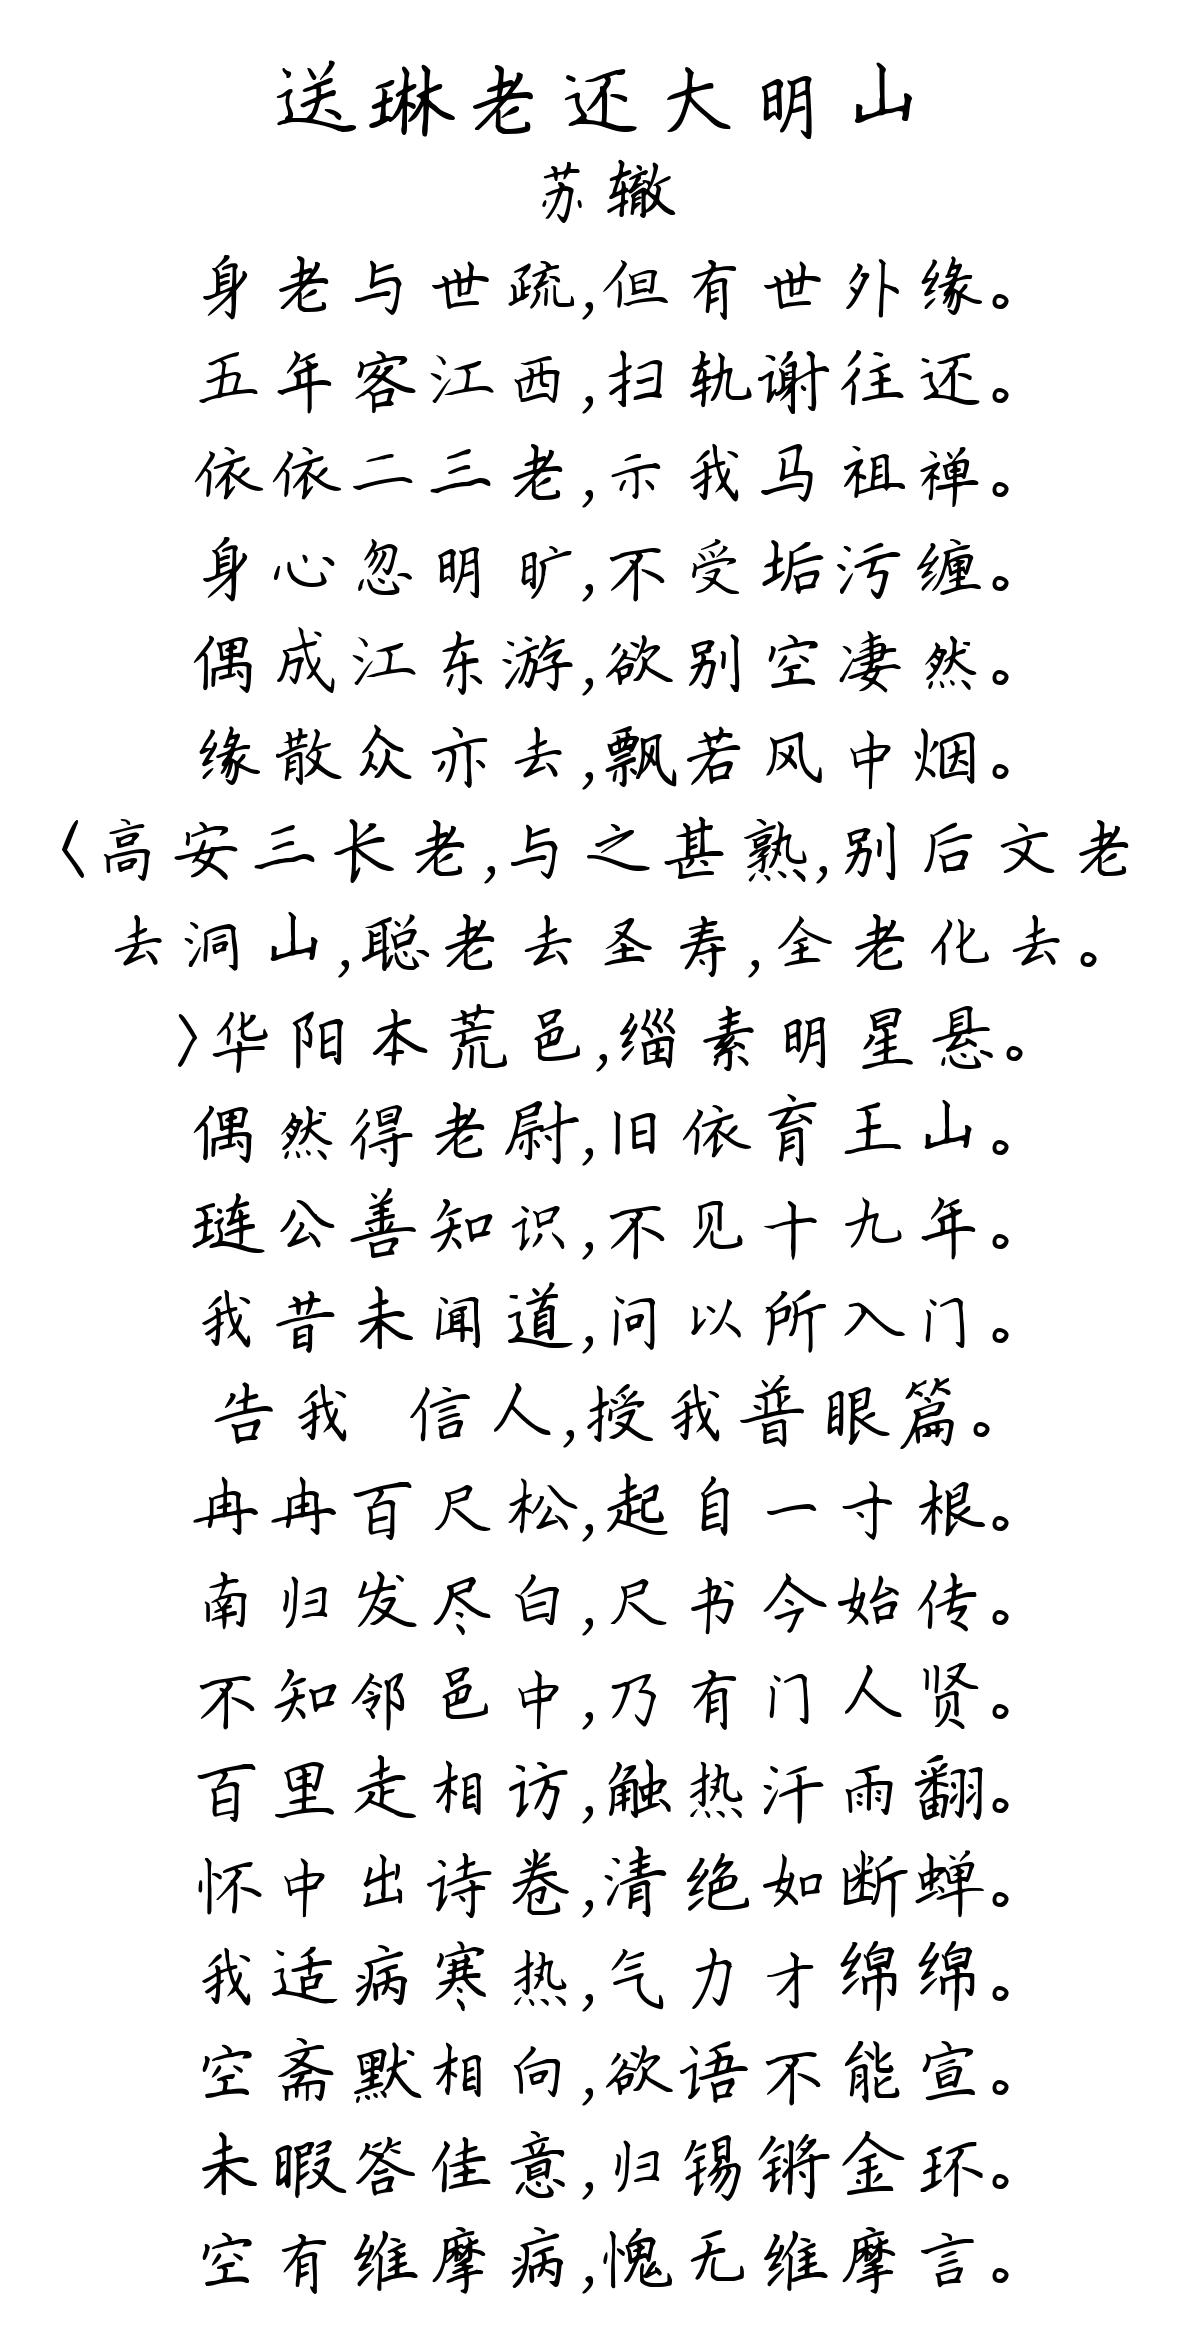 送琳老还大明山
苏辙
身老与世疏,但有世外缘。
五年客江西,扫轨谢往还。
依依二三老,示我马祖禅。
身心忽明旷,不受垢污缠。
偶成江东游,欲别空凄然。
缘散众亦去,飘若风中烟。
〈高安三长老,与之甚熟,别后文老
去洞山,聪老去圣寿,全老化去。
〉华阳本荒邑,缁素明星悬。
偶然得老尉,旧依育王山。
琏公善知识,不见十九年。
我昔未闻道,问以所入门。
告我 信人,授我普眼篇。
冉冉百尺松,起自一寸根。
南归发尽白,尺书今始传。
不知邻邑中,乃有门人贤。
百里走相访,触热汗雨翻。
怀中出诗卷,清绝如断蝉。
我适病寒热,气力才绵绵。
空斋默相向,欲语不能宣。
未暇答佳意,归锡锵金环。
空有维摩病,愧无维摩言。